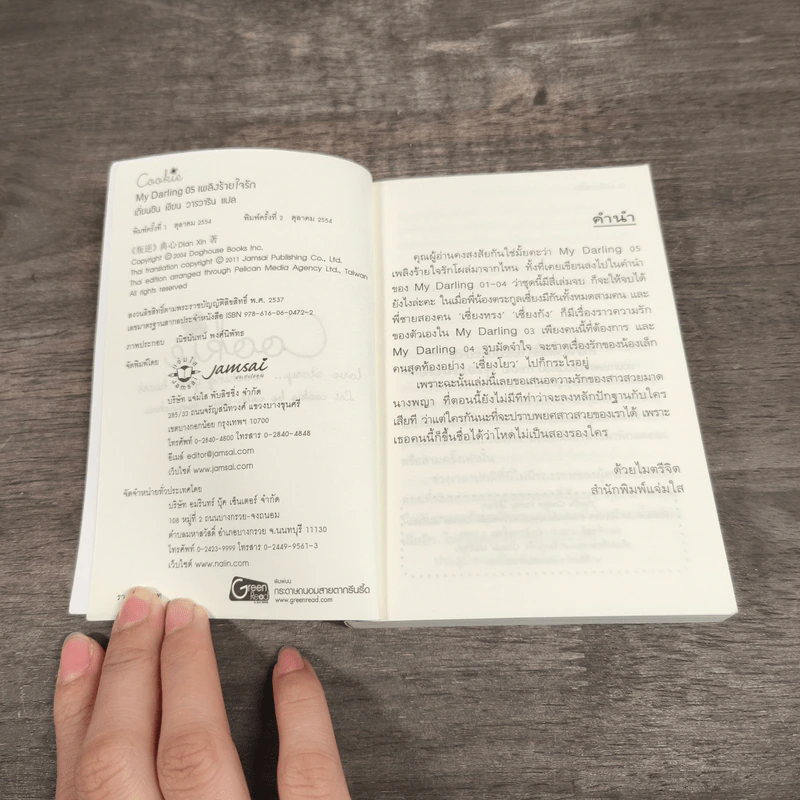 Cookie
My Darling 05 เพลิงร้ายใจรัก
เตี่ยนซิน เขียน วาราริน แปล
พิมพ์ครั้งที่ 1 ตุลาคม 2554 พิมพ์ครั้งที่ 2 ตุลาคม 2554
《叛逆》典心-Dian Xin 著
Copyright © 2004 Doghouse Books Inc.
Thai translation copyright © 2011 Jamsai Publishing Co., Ltd.
Thai edition arranged through Pelican Media Agency Ltd., Taiwan
All rights reserved
สงวนลิขสิทธิ์ตามพระราชบัญญัติลิขสิทธิ์ พ.ศ. 2537
เลขมาตรฐานสากลประจำหนังสือ ISBN 978-616-06-0472-2
ภาพประกอบ ณิชนันทน์ พงศ์นิพัทธ
จัดพิมพ์โดย
jamsai
บริษัท แจ่มใส พับลิชชิ่ง จำกัด
285/33 ถนนจรัญสนิทวงศ์ แขวงบางขุนศรี
เขตบางกอกน้อย กรุงเทพฯ 10700
โทรศัพท์ 0-2840-4800 โทรสาร 0-2840-4848
อีเมล์ editor@jamsai.com
เว็บไซต์ www.jamsai.com
จัดจำหน่ายทั่วประเทศโดย
บริษัท อมรินทร์ บุ๊ค เซ็นเตอร์ จำกัด
108 หมู่ที่ 2 ถนนบางกรวย-จงถนอม
ตำบลมหาสวัสดิ์ อำเภอบางกรวย จ.นนทบุรี 11130
โทรศัพท์ 0-2423-9999 โทรสาร 0-2449-9561-3
เว็บไซต์ www.naiin.com
Green Read
พิมพ์บน
กระดาษถนอมสายตากรีนรี้ด
www.greenread.com
คำนำ
คุณผู้อ่านคงสงสัยกันใช่มั้ยคะว่า My Darling 05
เพลิงร้ายใจรักโผล่มาจากไหน ทั้งที่เคยเขียนลงไปในคำนำ
ของ My Darling 01-04 ว่าชุดนี้มีสี่เล่มจบ ก็จะให้จบได้
ยังไงล่ะคะ ในเมื่อพี่น้องตระกูลเซี่ยงมีกันทั้งหมดสามคน และ
พี่ชายสองคน 'เซี่ยงหรง' 'เซี่ยงกัง' ก็มีเรื่องราวความรัก
ของตัวเองใน My Darling 03 เพียงคนนี้ที่ต้องการ และ
My Darling 04 จูบมัดจำใจ จะขาดเรื่องรักของน้องเล็ก
คนสุดท้องอย่าง 'เซี่ยงโยว' ไปก็กระไรอยู่
เพราะฉะนั้นเล่มนี้เลยขอเสนอความรักของสาวสวยมาด
นางพญา ที่ตอนนี้ยังไม่มีทีท่าว่าจะลงหลักปักฐานกับใคร
เสียที ว่าแต่ใครกันนะที่จะปราบพยศสาวสวยของเราได้ เพราะ
เธอคนนี้ก็ขึ้นชื่อได้ว่าโหดไม่เป็นสองรองใคร
ด้วยไมตรีจิต
สำนักพิมพ์แจ่มใส